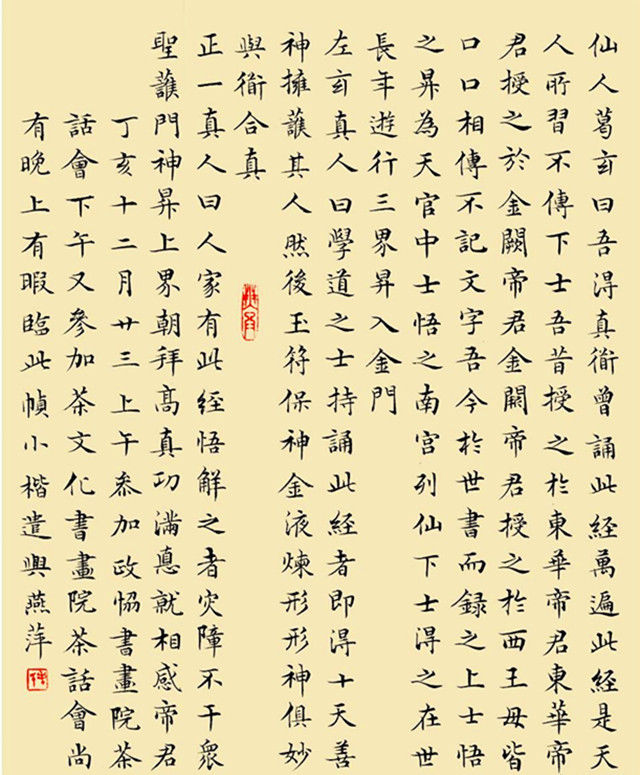 仙人葛玄曰吾淂真衜曾誦此經萬遍此經是天
人所習不傳下士吾昔授之於東華帝君東華帝
君授之於金闕帝君金闕帝君授之於西王母皆
口口相傳不記文字吾今於世書而録之上士悟
之昇為天官中士悟之南宫列仙下士淂之在世
長年遊行三界昇入金門
左玄真人曰學道之士持誦此經者即淂十天善
神擁䕶其人然後玉符保神金液煉形形神俱妙
與衜合真
正一真人曰人家有此經悟解之者灾障不干衆
聖䕶門神昇上界朝拜髙真功滿悳就相感帝君
丁亥十二月廿三上午叅加政協書畫院茶
話會下午又參加茶文化書畫院茶話會尚
有晚上有暇臨此幀小楷遣興燕萍